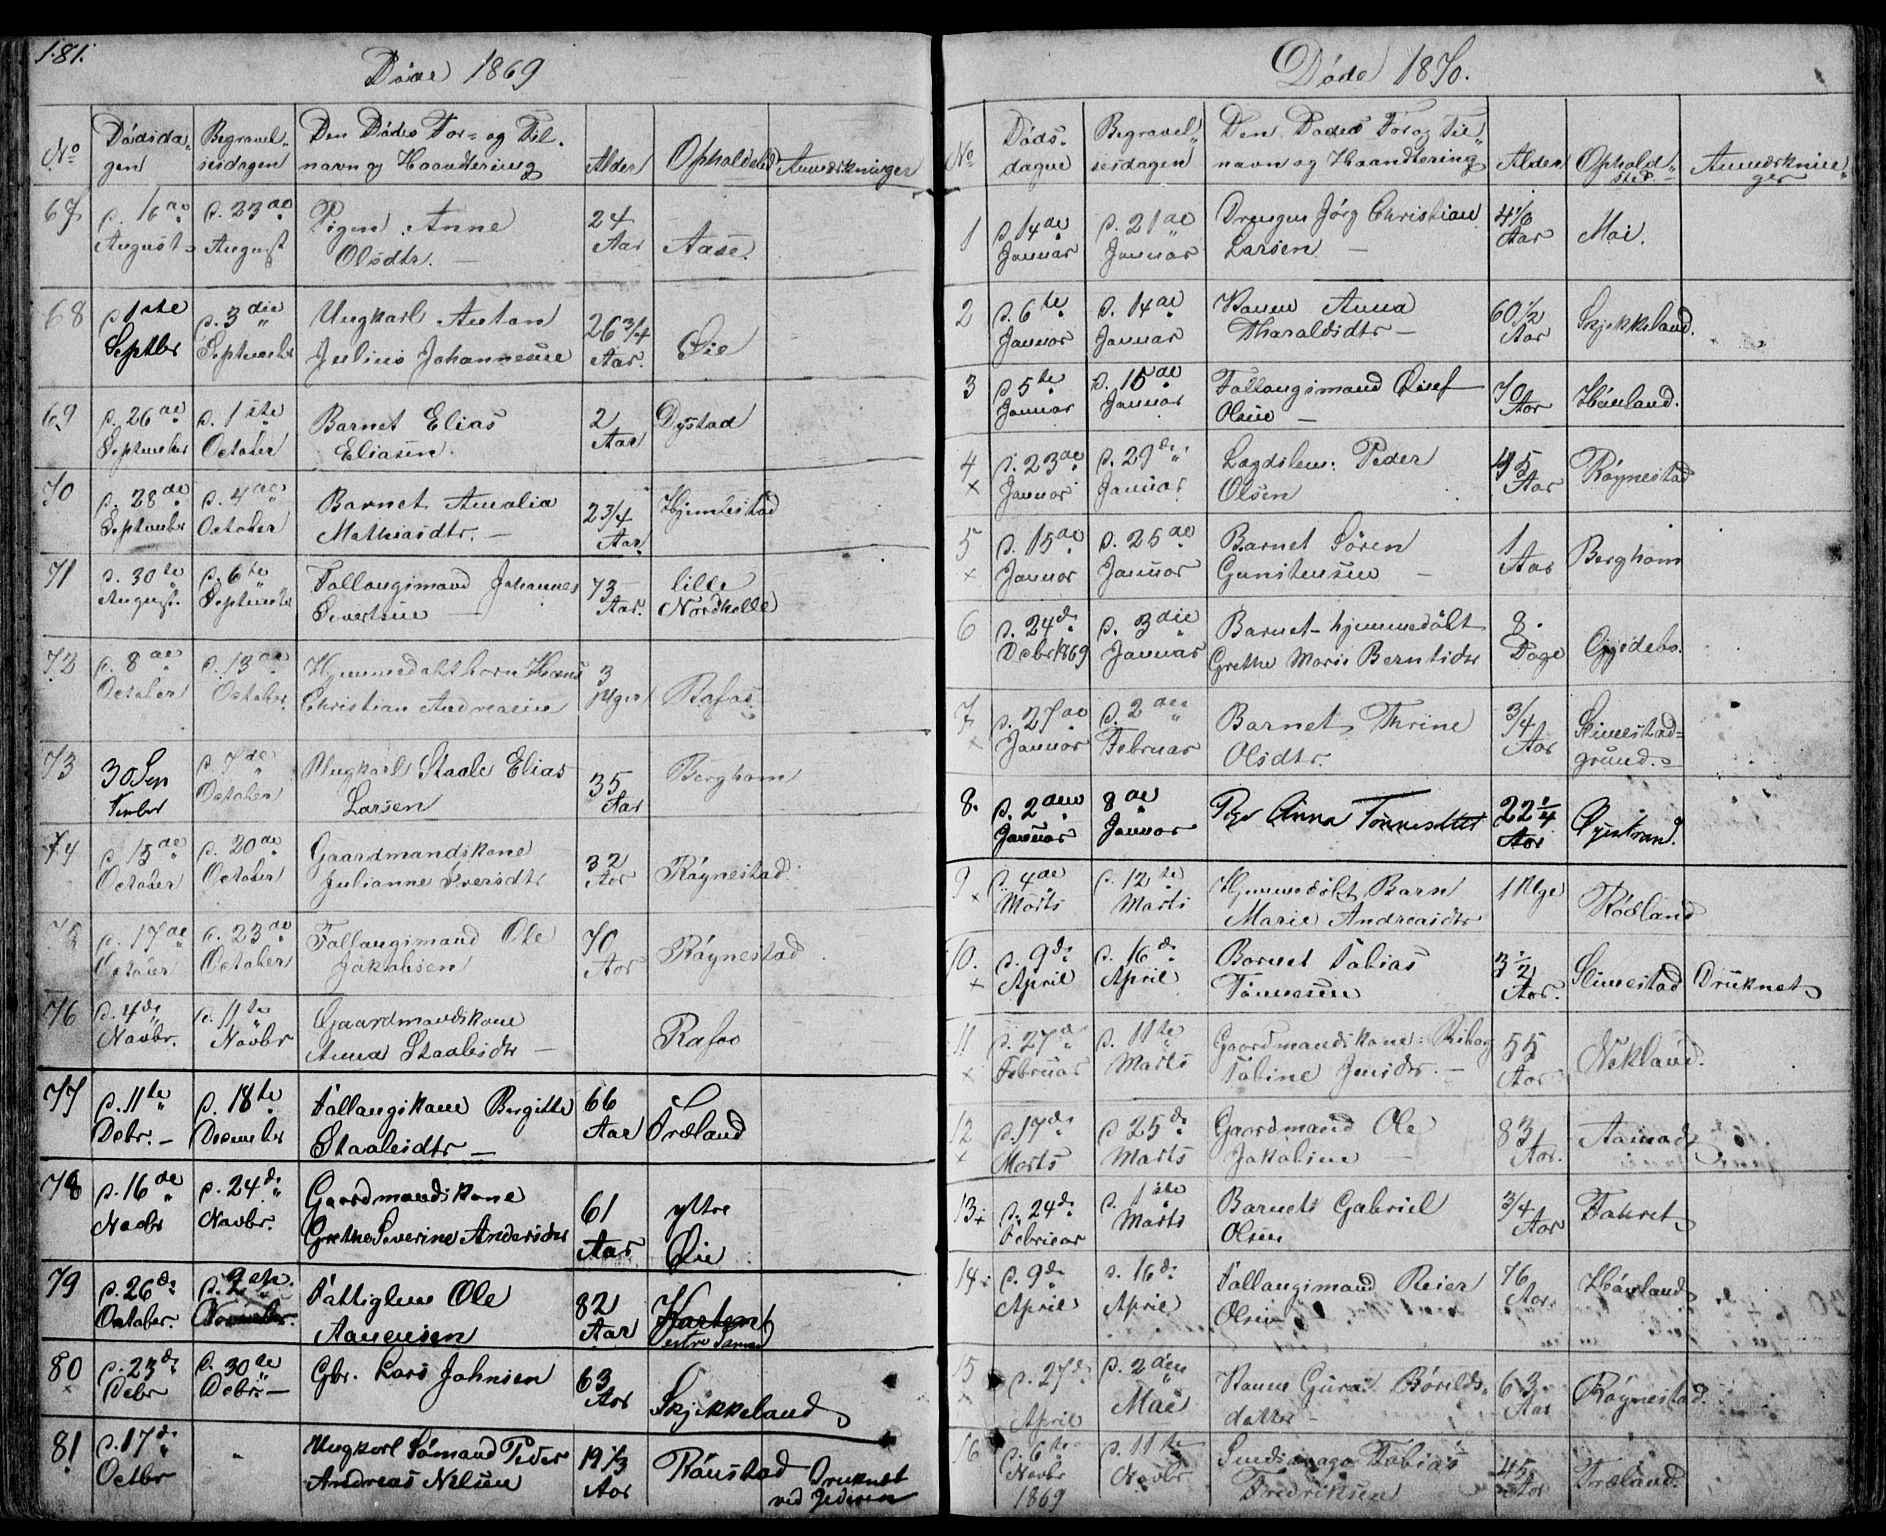 181.
Døde 1869
No
Dødsda-
gen
Begravel-
sesdagen
Den Dødes For- og Til-
navn og Haandtering
Alder
Opholdsted
Anmærkninger
67
d. 16de
August
d. 23de
August
Pigen Anne
Olsdtr. —
24
Aar
Aase.
68
d 1ste
Septbr
d. 3die
September
Ungkarl Anton
Julius Johannesen
26 3/4
Aar.
Øie
69
d. 26de
September
d. 1ste
October
Barnet Elias
Eliasen
2
Aar
Dystad
70
d. 28de
September
d. 4de
October
Barnet Amalia
Mathiasdtr. —
2 3/4
Aar
71
d. 30te
August.
d. 6te
September
Follaugsmand Johannes
Sivertsen
73
Aar.
lille
Nordhelle
72
d. 8de
October
d. 13de
October
Hjemmedøbt barn Hans
Christian Andreasen
3
Uger
Rafos
73
30 Sep
tember
d. 7de
October
Ungkarl Staale Elias
Larsen
35
Aar
Berghom
74
d. 15de
October
d. 20de
October
Gaardmandskone
Julianne Iversdtr
32
Aar
Røynestad
75
d. 17de
October
d. 23de
October
Follaugsmand Ole
Jakobsen
70
Aar
Røynestad
76
d. 4de
Novbr.
d. 11te
Novbr
Gaardmandskone
Anna Staalesdtr —
Rafos
77
d. 11te
Debr. —
d. 18te
December
Follaugskone Bergitte
Staalesdtr —
66
Aar
Træland
78
d. 16de
Novbr
d. 24de
Novbr.
Gaardmandskone
Grethe Severine Andersdtr
61
Aar
ytre
Øie
79
d. 26de
October.
November.
Fattiglem Ole
Aanensen
82
Aar
80
x
d. 23de
Debr
d. 30te
Debr —
Gbr. Lars Johnsen
63
Aar
Skjekkeland
81
d. 17de
Octbr
"
Ungkarl Sømand Peder
Andreas Nilsen
19 1/3
Aar
Rønstad
Druknet
ved Jederen
Døde 1870.
No
Døds-
dagen
Begravel-
sesdagen
Den Dødes For og Til-
navn og Haandtering
Alder
Ophold-
sted.
Anmærknin-
ger
1
d. 14de
Januar
d. 21de
Januar
Drengen Jørg Christian
Larsen —
Aar
Moi.
2
d. 6te
Januar
d. 14de
Januar
Konen Anna
Tharaldsdtr —
60 1/2
Aar
Skjekkeland.
3
d. 5te
Januar
d. 15de
Januar
Follaugsmand
Olsen —
70
Aar
Høuland.
4
x
d. 23de
Januar
d. 29de
Januar
Lægdslem: Peder
Olsen
45
Aar
Røynestad
5
x
d. 15de
Januar
d. 25de
Januar
Barnet Søren
Gunstensen —
1
Aar
Berghom
6
d. 24de
Debr 1869
d. 3die
Januar
Barnet hjemmedøbt
Grethe Marie Berntsdtr
8.
Dage
Gjedebo.
7
x
d. 27de
Januar
d. 2den
Februar
Barnet Thrine
Olsdtr.
3/4
Aar
Slimestad-
grund. —
8.
d. 2den
Januar
8de
Januar
Pige Anna Tønnesdtr
22 1/4
Aar
Øyestrand.
9
x
d. 4de
Marts
d. 12te
Marts
Hjemmedøbt Barn
Marie Andreasdtr
1 Uge
Rødland
10.
x
d. 9de
April
d. 16de
April
Barnet Tobias
Tønnesen
3 1/2
Aar.
Slimestad
Druknet
11
x
d. 27de
Februar
d. 11te
Marts
Gaardmandskone: Riborg
Tobine Jensdtr. —
55
Aar
Nekland.
12
x
d. 17de
Marts
d 25de
Marts
Gaardmand Ole
Jakobsen —
83
Aar.
Aamod
13
x
d. 24de
Februar
d. 1ste
Marts
Barnet Gabriel
Olsen
3/4
Aar
Fokret
14
d. 9de
April
d. 16de
April
Follaugsmand Reier
Olsen
76
Aar.
Høuland
15
x
d. 27de
April
d. 2den
Mai
Konen Guro Børilds-
datter —
63
Aar
Røynestad.
16
d. 6te
Novbr
1869
d. 11te
Novbr
Tobias
Fredriksen
45
Aar
Træland.